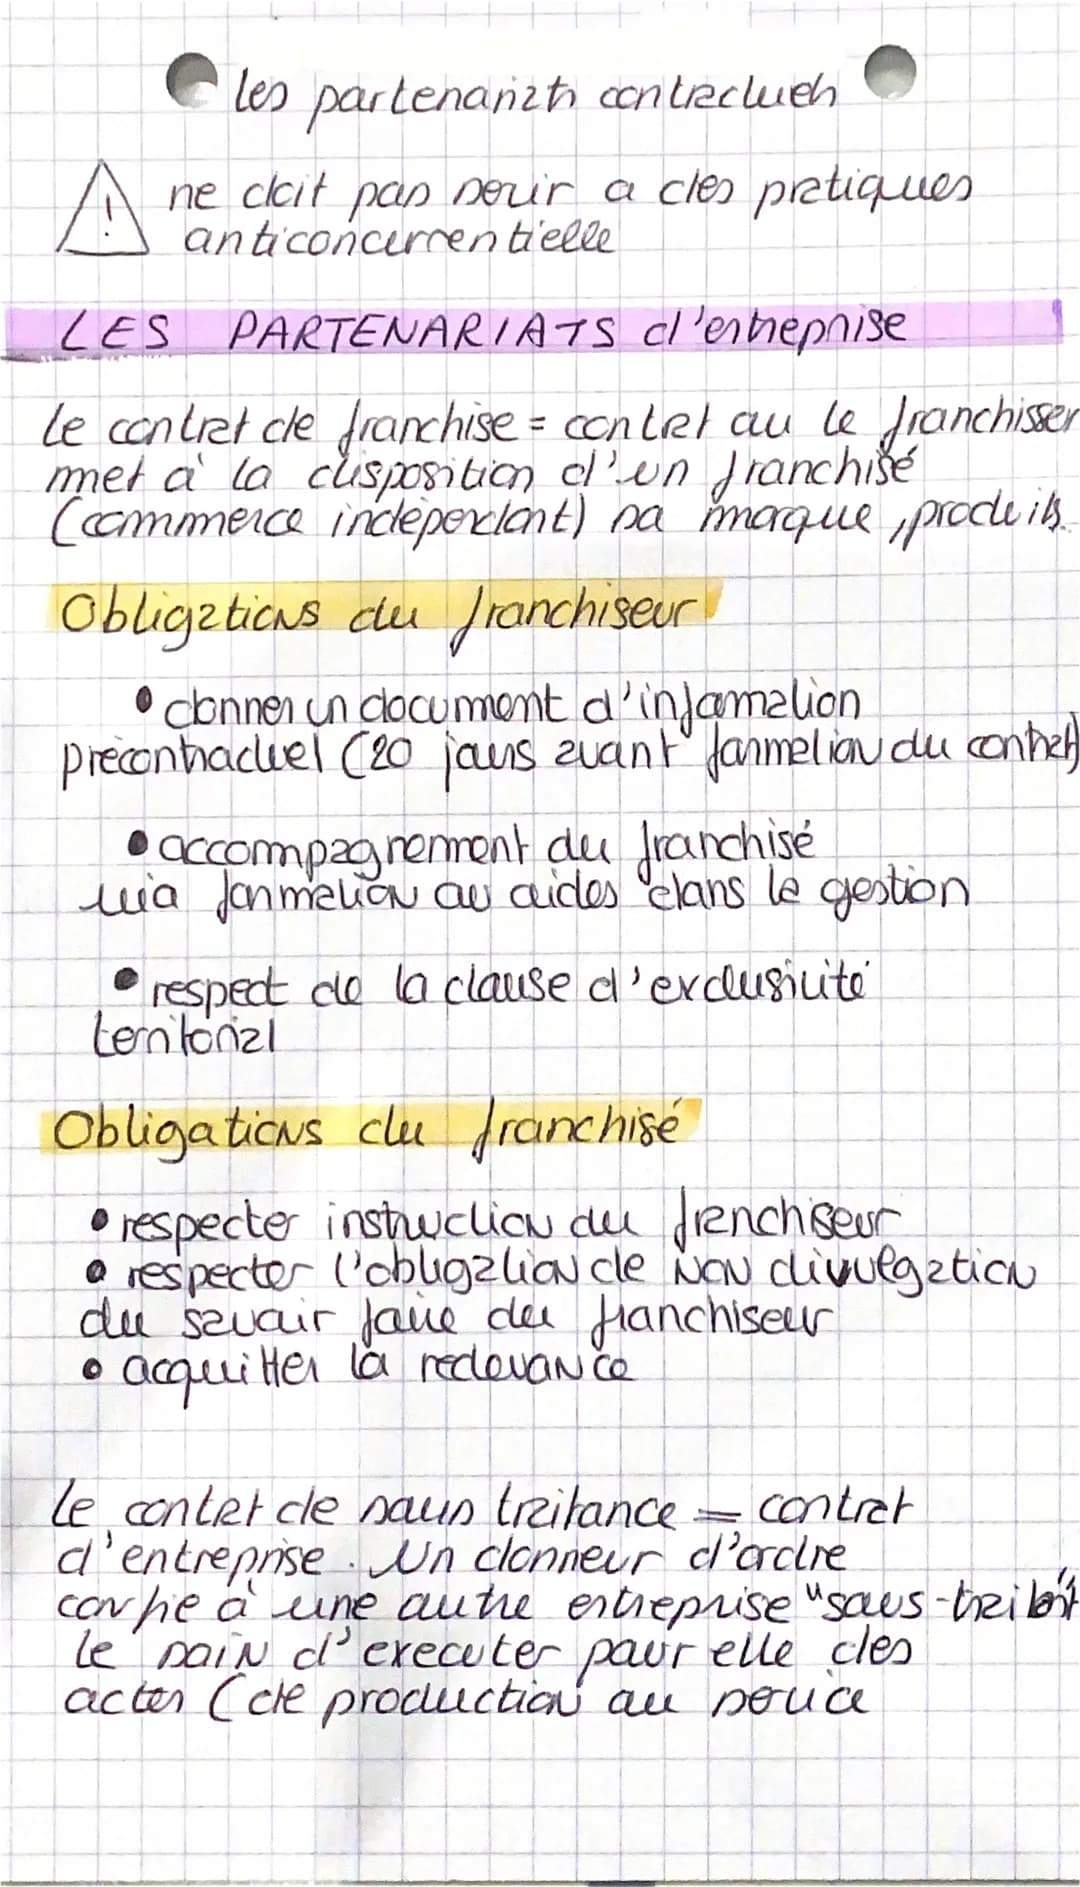 les partenariats contractuels
ne doit pas servir a des pratiques
anticoncurrentielle
LES PARTENARIATS d'entreprise
le contrat de franchise = contrat ou le franchisser
met à la disposition d'un franchisé
(commerce indépendant) sa marque, produits.
Obligations du franchiseur
• donner un document d'information
précontractuel (20 jours avant formation du contrat)
• accompagnement du franchisé
via formation ou aides dans le gestion
• respect de la clause d'exclusivité
territorial
Obligations du franchisé
• respecter instruction du franchiseur
• respecter l'obligation de non divulgation
du savoir faire du franchiseur
• acquitter la redevance
le contrat de sous traitance = contrat
d'entreprise. Un donneur d'ordre
confie à une autre entreprise "sous-traitant
le soin d'executer pour elle des
actes (de production ou service